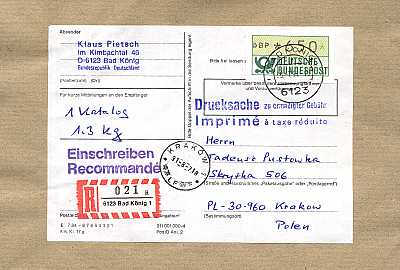 Absender
Klaus Pietsch
Im Kimbachtal 46
D-6123 Bad König
Bundesrepublik Deutschland
Für kurze Mitteilungen an den Empfänger
1 Katalog
1.3 Kg
Einschreiben
Recommandé
R
021
6123 Bad König 1
Bitte frei lassen
DBP
*650
DEUTSCHE
BUNDESPOST
6123
Drucksache zu ermäßigter Gebühr
Imprimé à taxe réduite
KRAKÓW 1
Herrn
Tadeusz Pustowka
Skrytka 506
PL-30-960 Krakow
(Bestimmungsort)
Polen